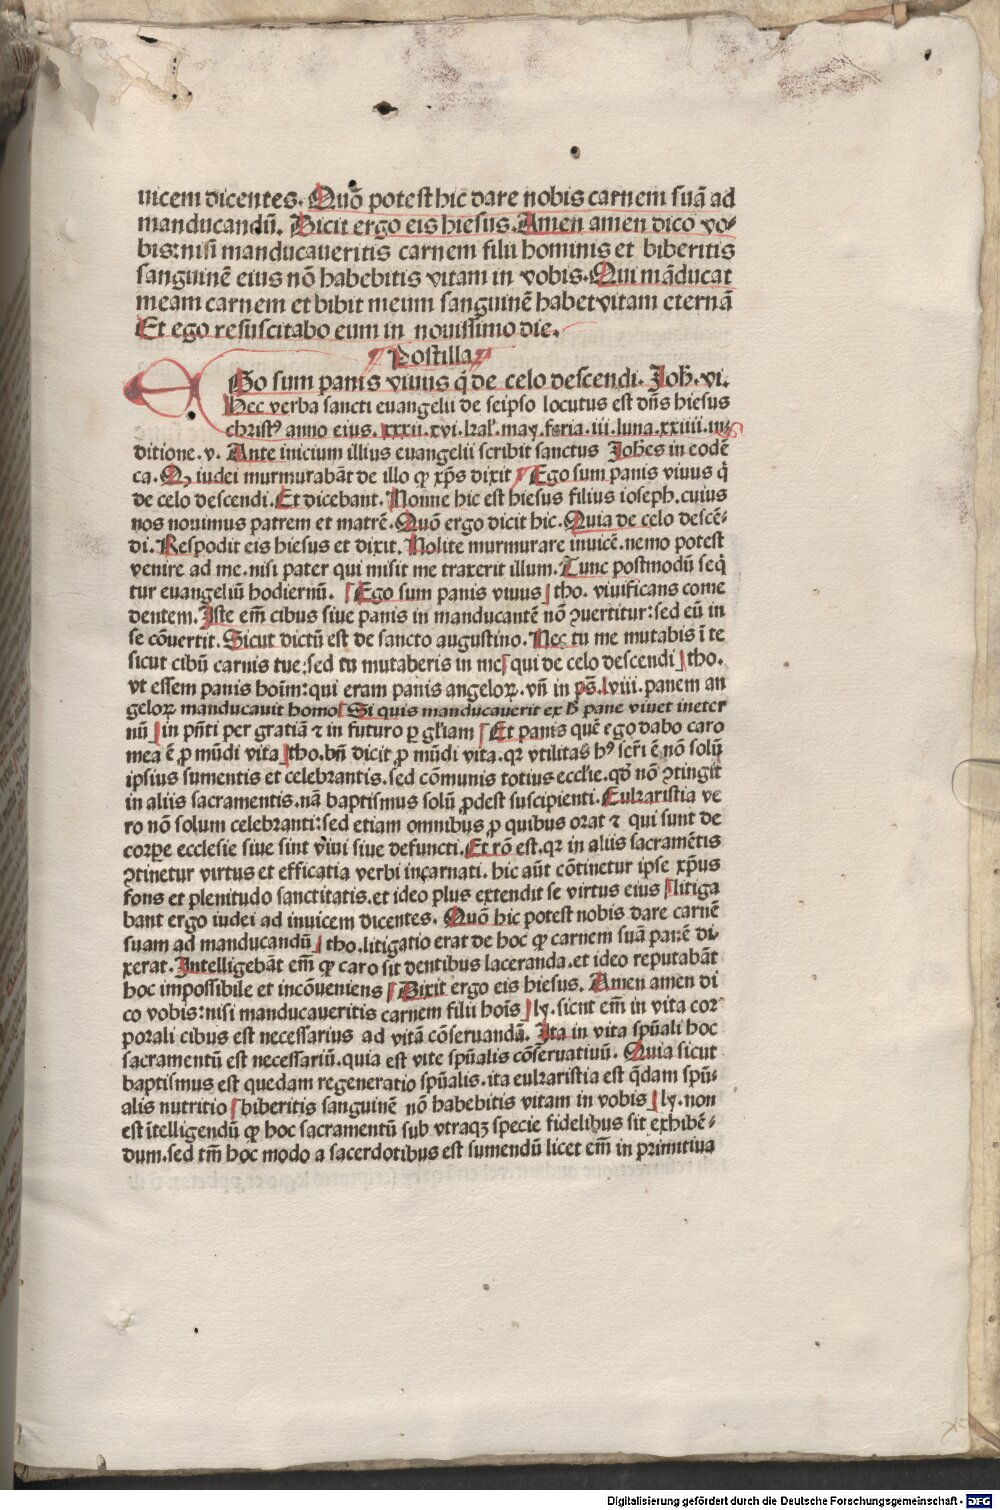 uicem dicentes. Quõ potest hic dare nobis carnem suã ad
manducandũ. Dicit ergo eis hiesus. Amen amen dico vo-
bis: nisi manducaueritis carnem filii hominis et biberitis
sanguinẽ eius nõ habebitis vitam in vobis. Qui mãducat
meam carnem et bibit meum sanguinẽ habet vitam eternã
Et ego resuscitabo eum in nouissimo die.
Postilla
EGo sum panis viuus q̃ de celo descendi. Joh. vi.
Hec verba sancti euangelii de seipso locutus est dñs hiesus
christꝰ anno eius. xxxii. xvi. kal'. may. feria. iii. luna. xxiiii. in-
ditione. v. Ante inicium illius euangelii scribit sanctus Johẽs in eodẽ
ca. Qꝫ iudei murmurabãt de illo qꝛ xp̃s dixit Ego sum panis viuus q̃
de celo descendi. Et dicebant. Nonne hic est hiesus filius ioseph. cuius
nos nouimus patrem et matrẽ. Quõ ergo dicit hic. Quia de celo descẽ-
di. Respodit eis hiesus et dixit. Nolite murmurare inuicẽ. nemo potest
venire ad me. nisi pater qui misit me traxerit illum. Tunc postmodũ seq̃
tur euangeliũ hodiernũ. Ego sum panis viuus tho. viuificans come
dentem. Iste em̃ cibus siue panis in manducantẽ nõ ꝯuertitur: sed eũ in
se cõuertit. Sicut dictũ est de sancto augustino. Nec tu me mutabis ĩ te
sicut cibũ carnis tue: sed tu mutaberis in me qui de celo descendi tho.
vt essem panis hoĩm: qui eram panis angeloꝝ. vñ in ps̃. lviii. panem an
geloꝝ manducauit homo Si quis manducauerit ex h̾ pane viuet ineter
nũ in pñti per gratiã ⁊ in futuro ꝑ gl'iam Et panis quẽ ego dabo caro
mea ẽ ꝓ mũdi vita tho. bñ dicit ꝓ mũdi vita. qꝛ vtilitas hꝰ scr̃i ẽ nõ solũ
ipsius sumentis et celebrantis. sed cõmunis totius eccl'ie. qđ nõ ꝯtingit
in aliis sacramentis. nã baptismus solũ ꝓdest suscipienti. Eukaristia ve
ro nõ solum celebranti: sed etiam omnibus ꝓ quibus orat ⁊ qui sunt de
corꝑe ecclesie siue sint viui siue defuncti. Et rõ est. qꝛ in aliis sacramẽtis
ꝯtinetur virtus et efficatia verbi incarnati. hic aũt cõtinetur ipse xp̃us
fons et plenitudo sanctitatis. et ideo plus extendit se virtus eius litiga
bant ergo iudei ad inuicem dicentes. Quõ hic potest nobis dare carnẽ
suam ad manducandũ tho. litigatio erat de hoc qꝛ carnem suã panẽ di-
xerat. Intelligebãt em̃ qꝛ caro sit dentibus laceranda. et ideo reputabãt
hoc impossibile et incõueniens Dixit ergo eis hiesus. Amen amen di
co vobis: nisi manducaueritis carnem filii hoĩs ly. sicut em̃ in vita cor
porali cibus est necessarius ad vitã cõseruandã. Ita in vita spũali hoc
sacramentũ est necessariũ. quia est vite spũalis cõseruatiuũ. Quia sicut
baptismus est quedam regeneratio spũalis. ita eukaristia est q̃dam spũ-
alis nutritio biberitis sanguinẽ nõ habebitis vitam in vobis ly. non
est ĩtelligendũ qꝛ hoc sacramentũ sub vtraqꝫ specie fidelibus sit exhibẽ-
dum. sed tm̃ hoc modo a sacerdotibus est sumendũ licet em̃ in primitiua
Digitalisierung gefördert durch die Deutsche Forschungsgemeinschaft - DFG